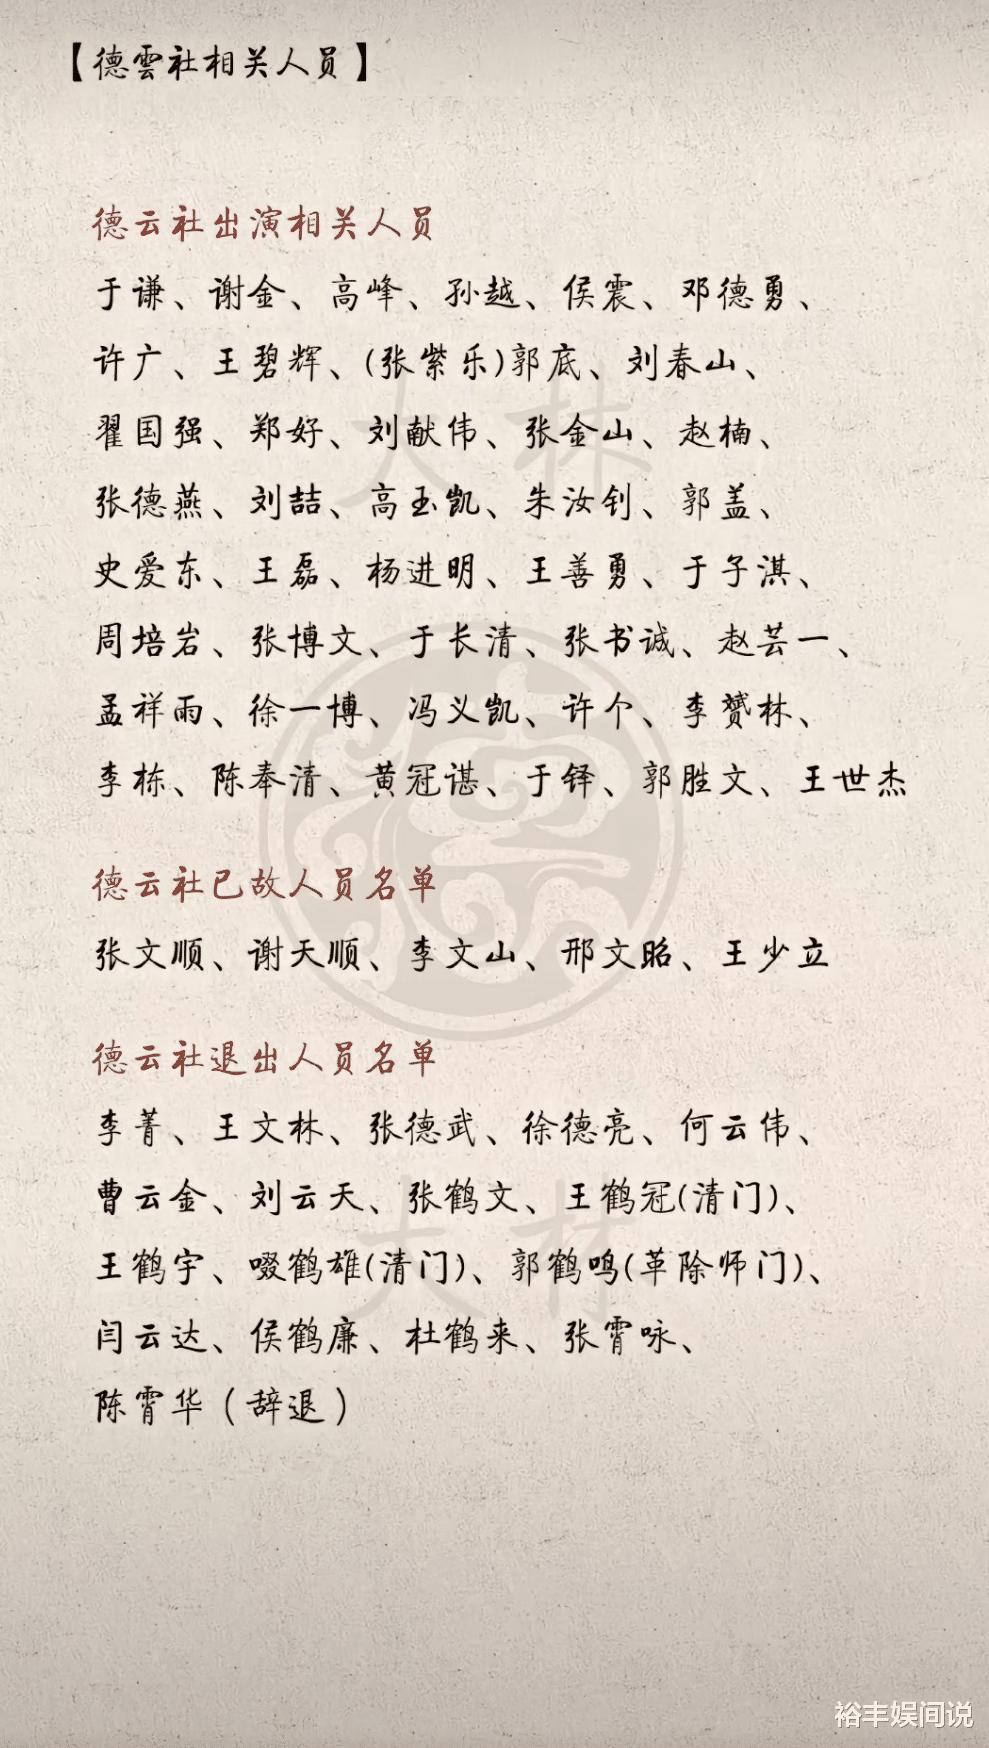 【德雲社相关人员】
德云社出演相关人员
于谦、谢金、高峰、孙越、侯震、邓德勇、
许广、王碧辉、(张紫乐)郭底、刘春山、
翟国强、郑好、刘献伟、张金山、赵楠、
张德燕、刘喆、高玉凯、朱汝钊、郭盖、
史爱东、王磊、杨进明、王善勇、于子淇、
周培岩、张博文、于长清、张书诚、赵芸一、
孟祥雨、徐一博、冯义凯、许个、李赟林、
李栋、陈奉清、黄冠谌、于铎、郭胜文、王世杰
德云社已故人员名单
张文顺、谢天顺、李文山、邢文昭、王少立
德云社退出人员名单
李菁、王文林、张德武、徐德亮、何云伟、
曹云金、刘云天、张鹤文、王鹤冠(清门)、
王鹤宇、啜鹤雄(清门)、郭鹤鸣(革除师门)、
闫云达、侯鹤廉、杜鹤来、张霄咏、
陈霄华（辞退）
大林
大林
裕丰娱间说